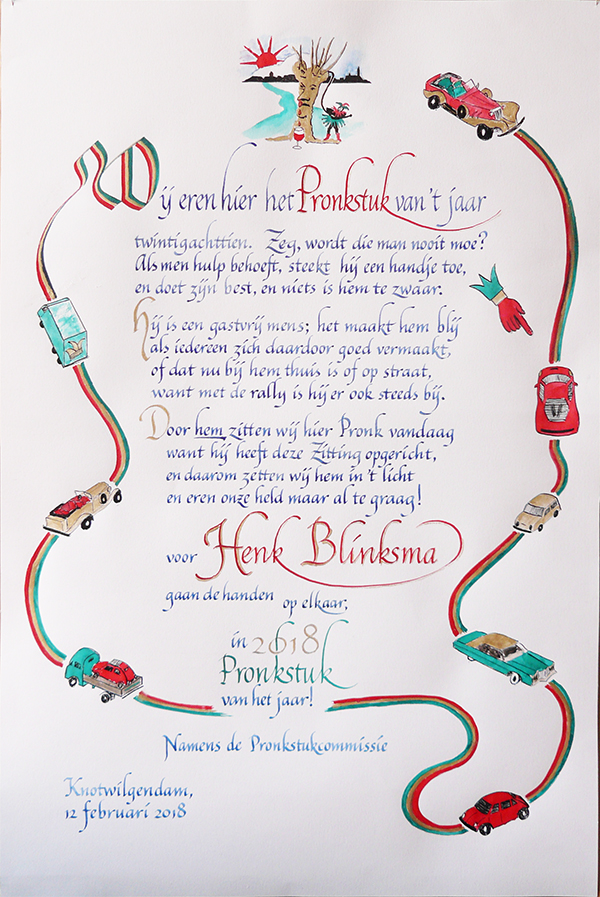 Wij eren hier het Pronkstuk van 't jaar
twintigachttien. Zeg, wordt die man nooit moe?
Als men hulp behoeft, steekt hij een handje toe,
en doet zijn best, en niets is hem te zwaar.
Hij is een gastvrij mens; het maakt hem blij
als iedereen zich daardoor goed vermaakt,
of dat nu bij hem thuis is of op straat,
want met de rally is hij er ook steeds bij.
Door hem zitten wij hier Pronk vandaag
want hij heeft deze Zitting opgericht,
en daarom zetten wij hem in 't licht
en eren onze held maar al te graag!
voor Henk Blinksma
gaan de handen op elkaar,
in 2018
Pronkstuk
van het jaar!
Namens de Pronkstukcommissie
Knotwilgendam,
12 februari 2018